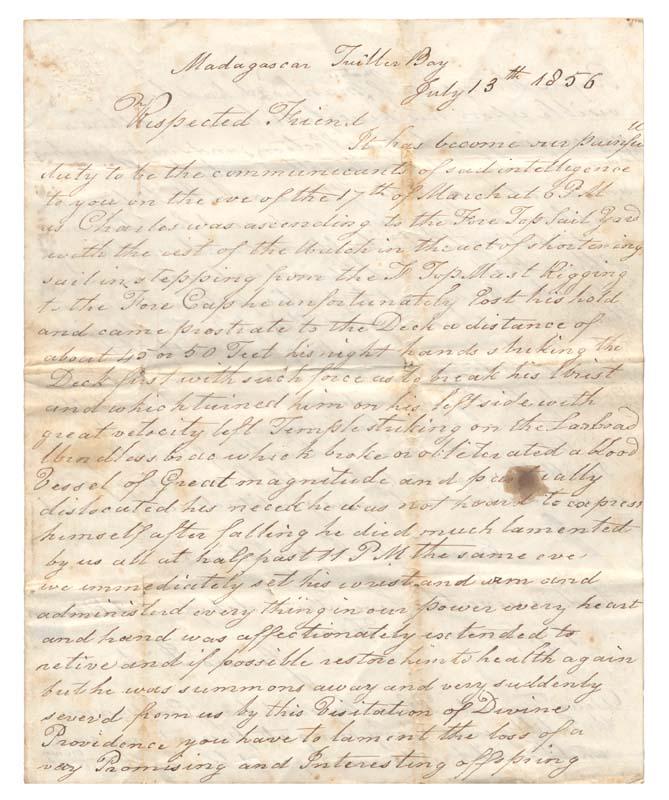 Madagascar Tuller Bay
July 13th 1856
Respected Friend
It has become our painful
duty to be the communicants of sad intelligence
to you on the eve of the 17th of March at 6 PM
as Charles was ascending to the Fore Top Sail Yard
with the rest of the Watch in the act of shortening
sail in stepping from the F Top Mast Rigging
to the Fore Caps he unfortunately Lost his hold
and came prostrate to the Deck a distance of
about 45 or 50 Feet his right hand striking the
Deck first with such force as to break his Wrist
and which turned him on his left side with
great velocity left Temple striking on the Larboad
Windless which broke or obliterated a blood
Vessel of Great magnitude and
dislocated his neck he was not heard to express
himself after falling he died much lamented
by us all at half past 11 PM the same eve
we immediately set his wrist and arm and
administerd every thiing in our power every heart
and hand was affectionately extended to
and if possible restore him to health again
but he was summons away and very suddenly
severd from us by this Visitation of Divine
Providence you have to lament the loss of a
very Promising and Interesting offspring